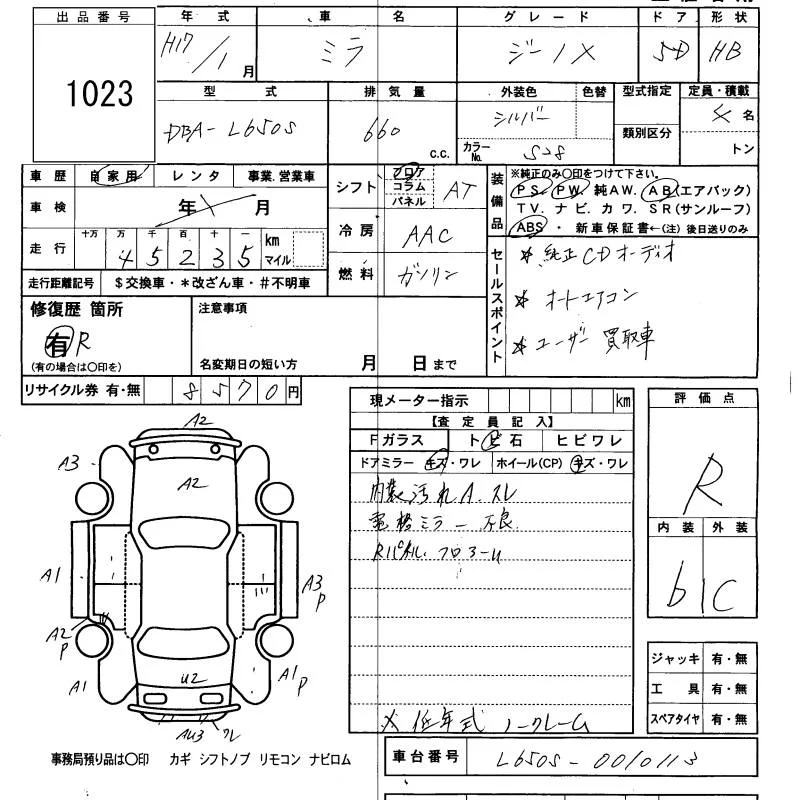 出品番号 年式 車名 グレード ドア 形状
1023 H17/1月 ミラ ジーノX 5D HB
型式 排気量 外装色 色替 型式指定 定員・積載
DBA-L650S 660 c.c. シルバー 類別区分 4名
カラーNo. S28 トン
車歴 自家用 レンタ 事業.営業車
車検 年 月
走行 十万 万 千 百 十 一 km マイル
45235
走行距離記号 $交換車・*改ざん車・#不明車
シフト フロア コラム パネル AT
冷房 AAC
燃料 ガソリン
装備品 ※純正のみ〇印をつけて下さい。
PS. PW. 純AW. AB(エアバック)
TV. ナビ. カワ. SR(サンルーフ)
ABS・新車保証書←(注)後日送りのみ
セールスポイント
☆ 純正CDオーディオ
☆ オートエアコン
☆ ユーザー買取車
修復歴 箇所
有 R
(有の場合は〇印を)
注意事項
名変期日の短い方 月 日まで
リサイクル券 有・無 8570円
現メーター指示 km
【査定員記入】
Fガラス トビ石 ヒビワレ
ドアミラー キズ・ワレ ホイール(CP) キズ・ワレ
内装汚れA.スレ
電格ミラー不良
※低年式 ノークレーム
評価点
R
内装 外装
b C
ジャッキ 有・無
工具 有・無
スペアタイヤ 有・無
A2
A3
A2
A1
A3
P
A2
P
A1
U2
A1
P
AU3 ワレ
事務局預り品は〇印 カギ シフトノブ リモコン ナビロム
車台番号 L650S-0010113